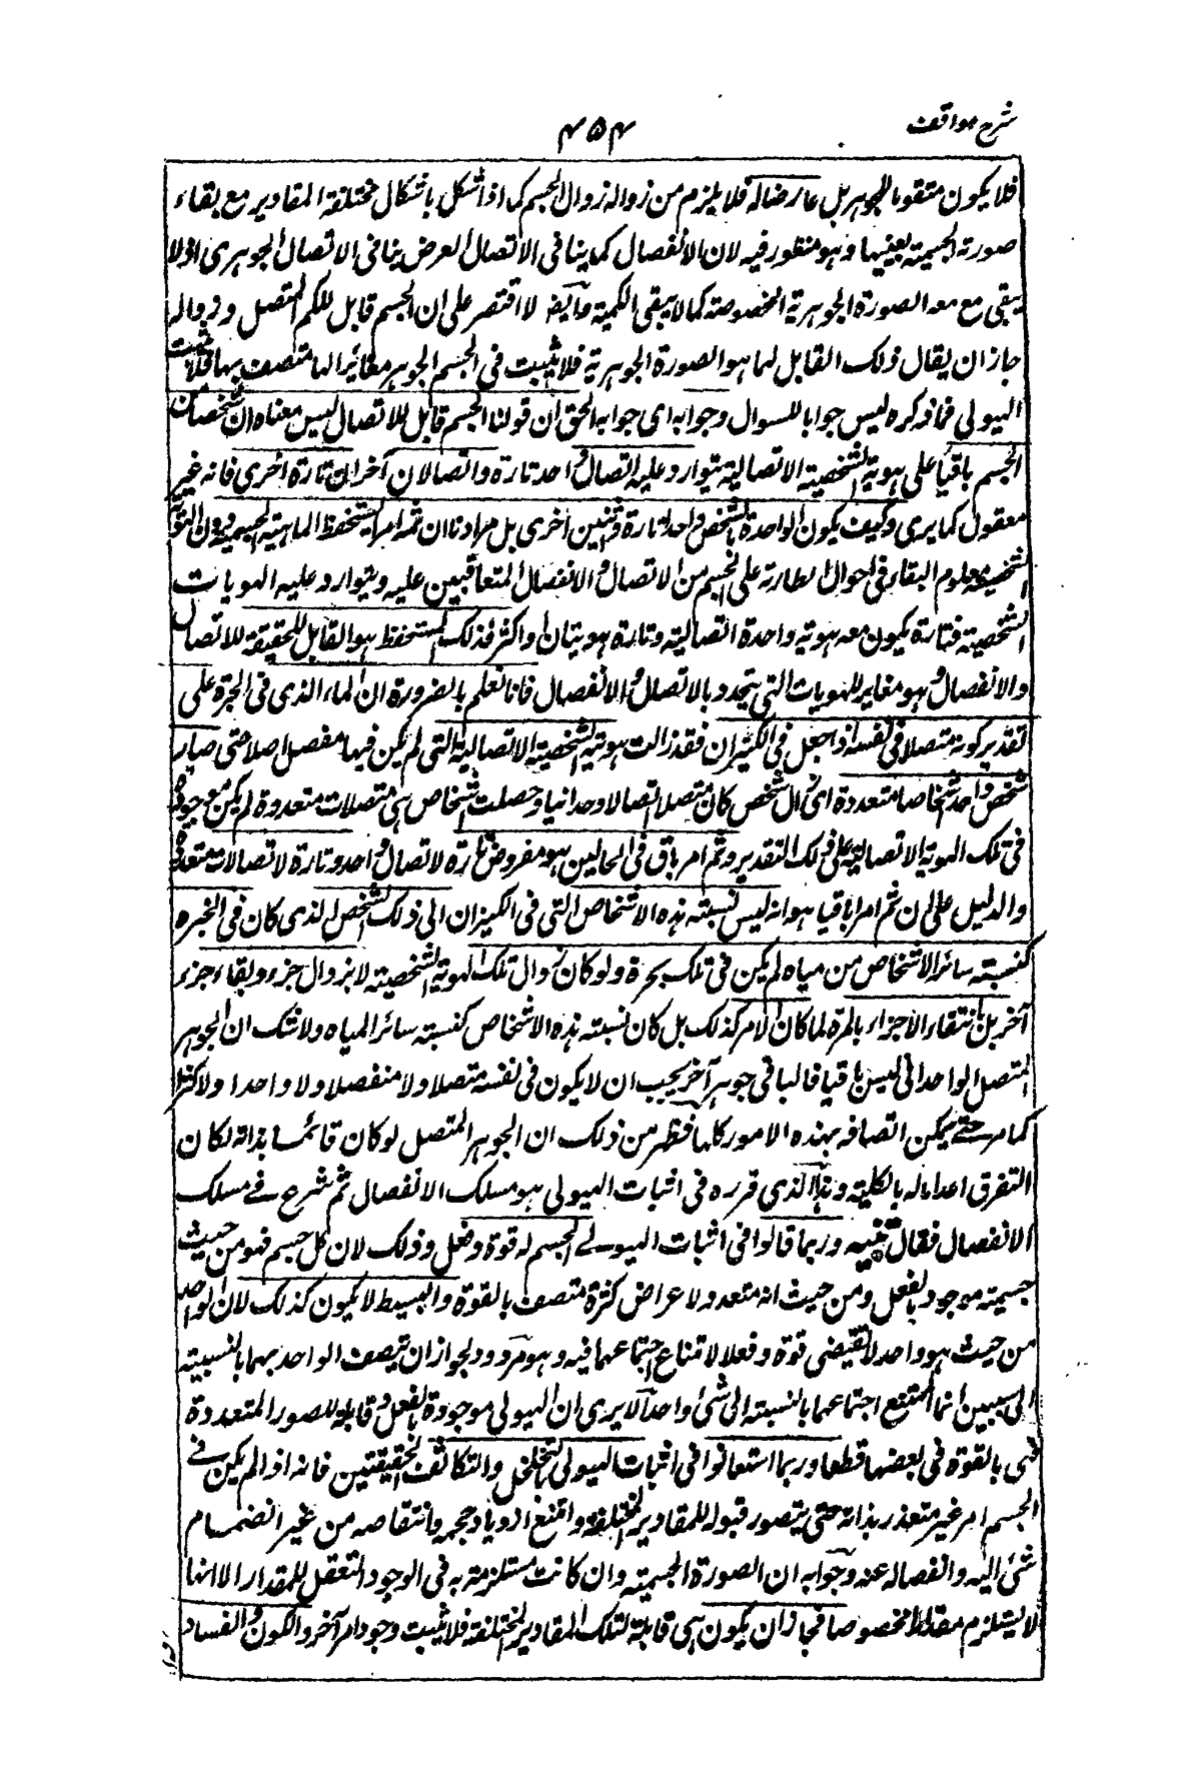 شرح مواقف
۴۵۴
فلا يكون متقوما للجوهر بل عارضا له فلا يلزم من زواله زوال الجسم كما اذا شكل باشكال مختلفة المقادير مع بقاء
صورته الجسمية بعينها وهو منظور فيه لان الانفصال كما ينافى الاتصال العرض ينافى الاتصال الجوهرى اذ لا
يبقى مع معه الصورة الجوهرية المخصوصة كما لا يبقى الكمية وأيضا لا اقتصر على ان الجسم قابل للكم المتصل وزواله
جاز ان يقال ذلك القابل لهما هو الصورة الجوهرية فلا يثبت فى الجسم الجوهر مغائر الها متصف بها فلا يثبت
الهيولى فما ذكره ليس جوابا للسوال وجوابه اى جوابه الحق ان قولنا الجسم قابل للاتصال ليس معناه ان شخصا من
الجسم باقيا على هويته الشخصية الاتصالية يتوارد عليه اتصال واحد تارة واتصالان آخران تارة اخرى فانه غير
معقول كما يرى وكيف يكون الواحدة بالشخص واحدا تارة واثنين اخرى بل مرادنا ان ثمه امرا يستحفظ الماهية الجسمية دون الهوية
الشخصية معلوم البقاء فى احوال الطارية على الجسم من الاتصال والانفصال المتعاقبين عليه ويتوارد عليه الهويات
الشخصية فتارة يكون معه هوية واحدة اتصالية وتارة هويتان او اكثر فذلك المستحفظ هو القابل للحقيقة للاتصال
والانفصال وهو مغاير للهويات التى يتجدد بالاتصال والانفصال فانا نعلم بالضرورة ان الماء الذى فى الجرة على
تقدير كونه متصلا فى نفسه اذا جعل فى الكيزان فقد زالت هويته الشخصية الاتصالية التى لم يكن فيها مفصل اصلا حتى صار
شخص واحد اشخاصا متعددة اى زال شخص كان متصلا اتصالا وحدانيا وحصلت اشخاص هى متصلات متعددة لم يكن موجودة
فى تلك الهوية الاتصالية على ذلك التقدير وثم امر باق فى الحالين هو معروض تارة لاتصال واحد وتارة لاتصالات متعددة
والدليل على ان ثم امرا باقيا هو انه ليس نسبته هذه الاشخاص التى فى الكيزان الى ذلك الشخص الذى كان فى الجره
كنسبته سائر الاشخاص من مياه لم يكن فى تلك بجرة ولو كان زوال تلك الهوية الشخصية لا بزوال جزء وبقاء جزء
آخر بل بانتفاء الاجزاء بالمرة لما كان الامر كذلك بل كان نسبته هذه الاشخاص كنسبته سائر المياه ولا شك ان الجوهر
المتصل الواحدانى ليس باقيا فالباقى جوهر آخر يجب ان لا يكون فى نفسه متصلا ولا منفصلا ولا واحدا ولا كثيرا
كما مر حتے يمكن اتصافه بهذه الامور كلها فظهر من ذلك ان الجوهر المتصل لو كان قائما بذاته لكان
التفرق اعداما له بالكلية وهذا الذى قرره فى اثبات الهيولى هو مسلك الانفصال ثم شرع فے مسلك
الانفصال فقال تنبيه وربما قالوا فى اثبات الهيولے الجسم له قوة وفعل وذلك لان كل جسم فهو من حيث
جسميته موجود بالفعل ومن حيث انه متعدد لاعراض كثرة متصف بالقوة والبسيط لا يكون كذلك لان الواحد
من حيث هو واحد لا يقتضى قوة وفعلا لامتناع اجتماعهما فيه وهو مردود لجواز ان يتصف الواحد بهما بالنسبية
الى سببين انما الممتنع اجتماعهما بالنسبته الى شئ واحد الا يرى ان الهيولى موجودة بالفعل وقابلة للصور المتعددة
فهى بالقوة فى بعضها قطعا وربما استعانوا فى اثبات الهيولى بالتخلخل والتكاثف الحقيقتين فانه اذا لم يكن فے
الجسم امر غير متعذر بذاته حتى يتصور قبوله للمقادير المختلفة وامتنع ازدياد حجمه وانتقاصه من غير انضمام
شئ اليه وانفصاله عنه وجوابه ان الصورة الجسمية وان كانت مستلزمة به فى الوجود التعقل للمقدار الا انها
لا يستلزم مقدارا مخصوصا فجاز ان يكون هى قابلة لتلك المقادير المختلفة فلا يثبت وجود امر آخر والكون والفساد